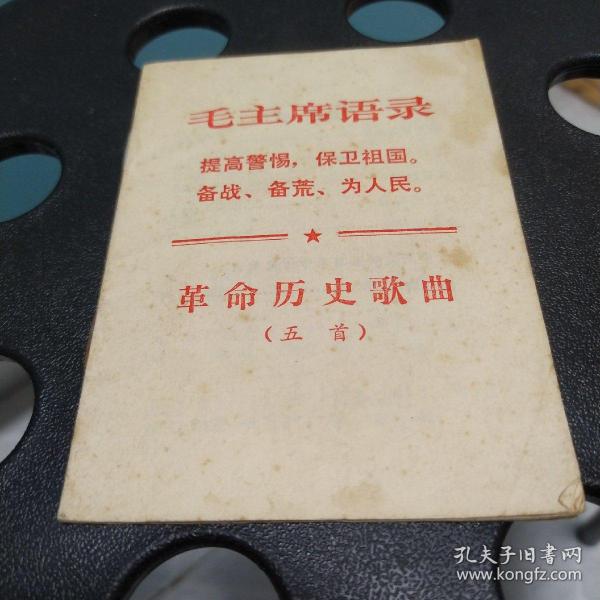 毛主席语录
提高警惕，保卫祖国。
备战、备荒、为人民。
革命历史歌曲
（五首）
孔夫子旧书网
www.kongfz.com